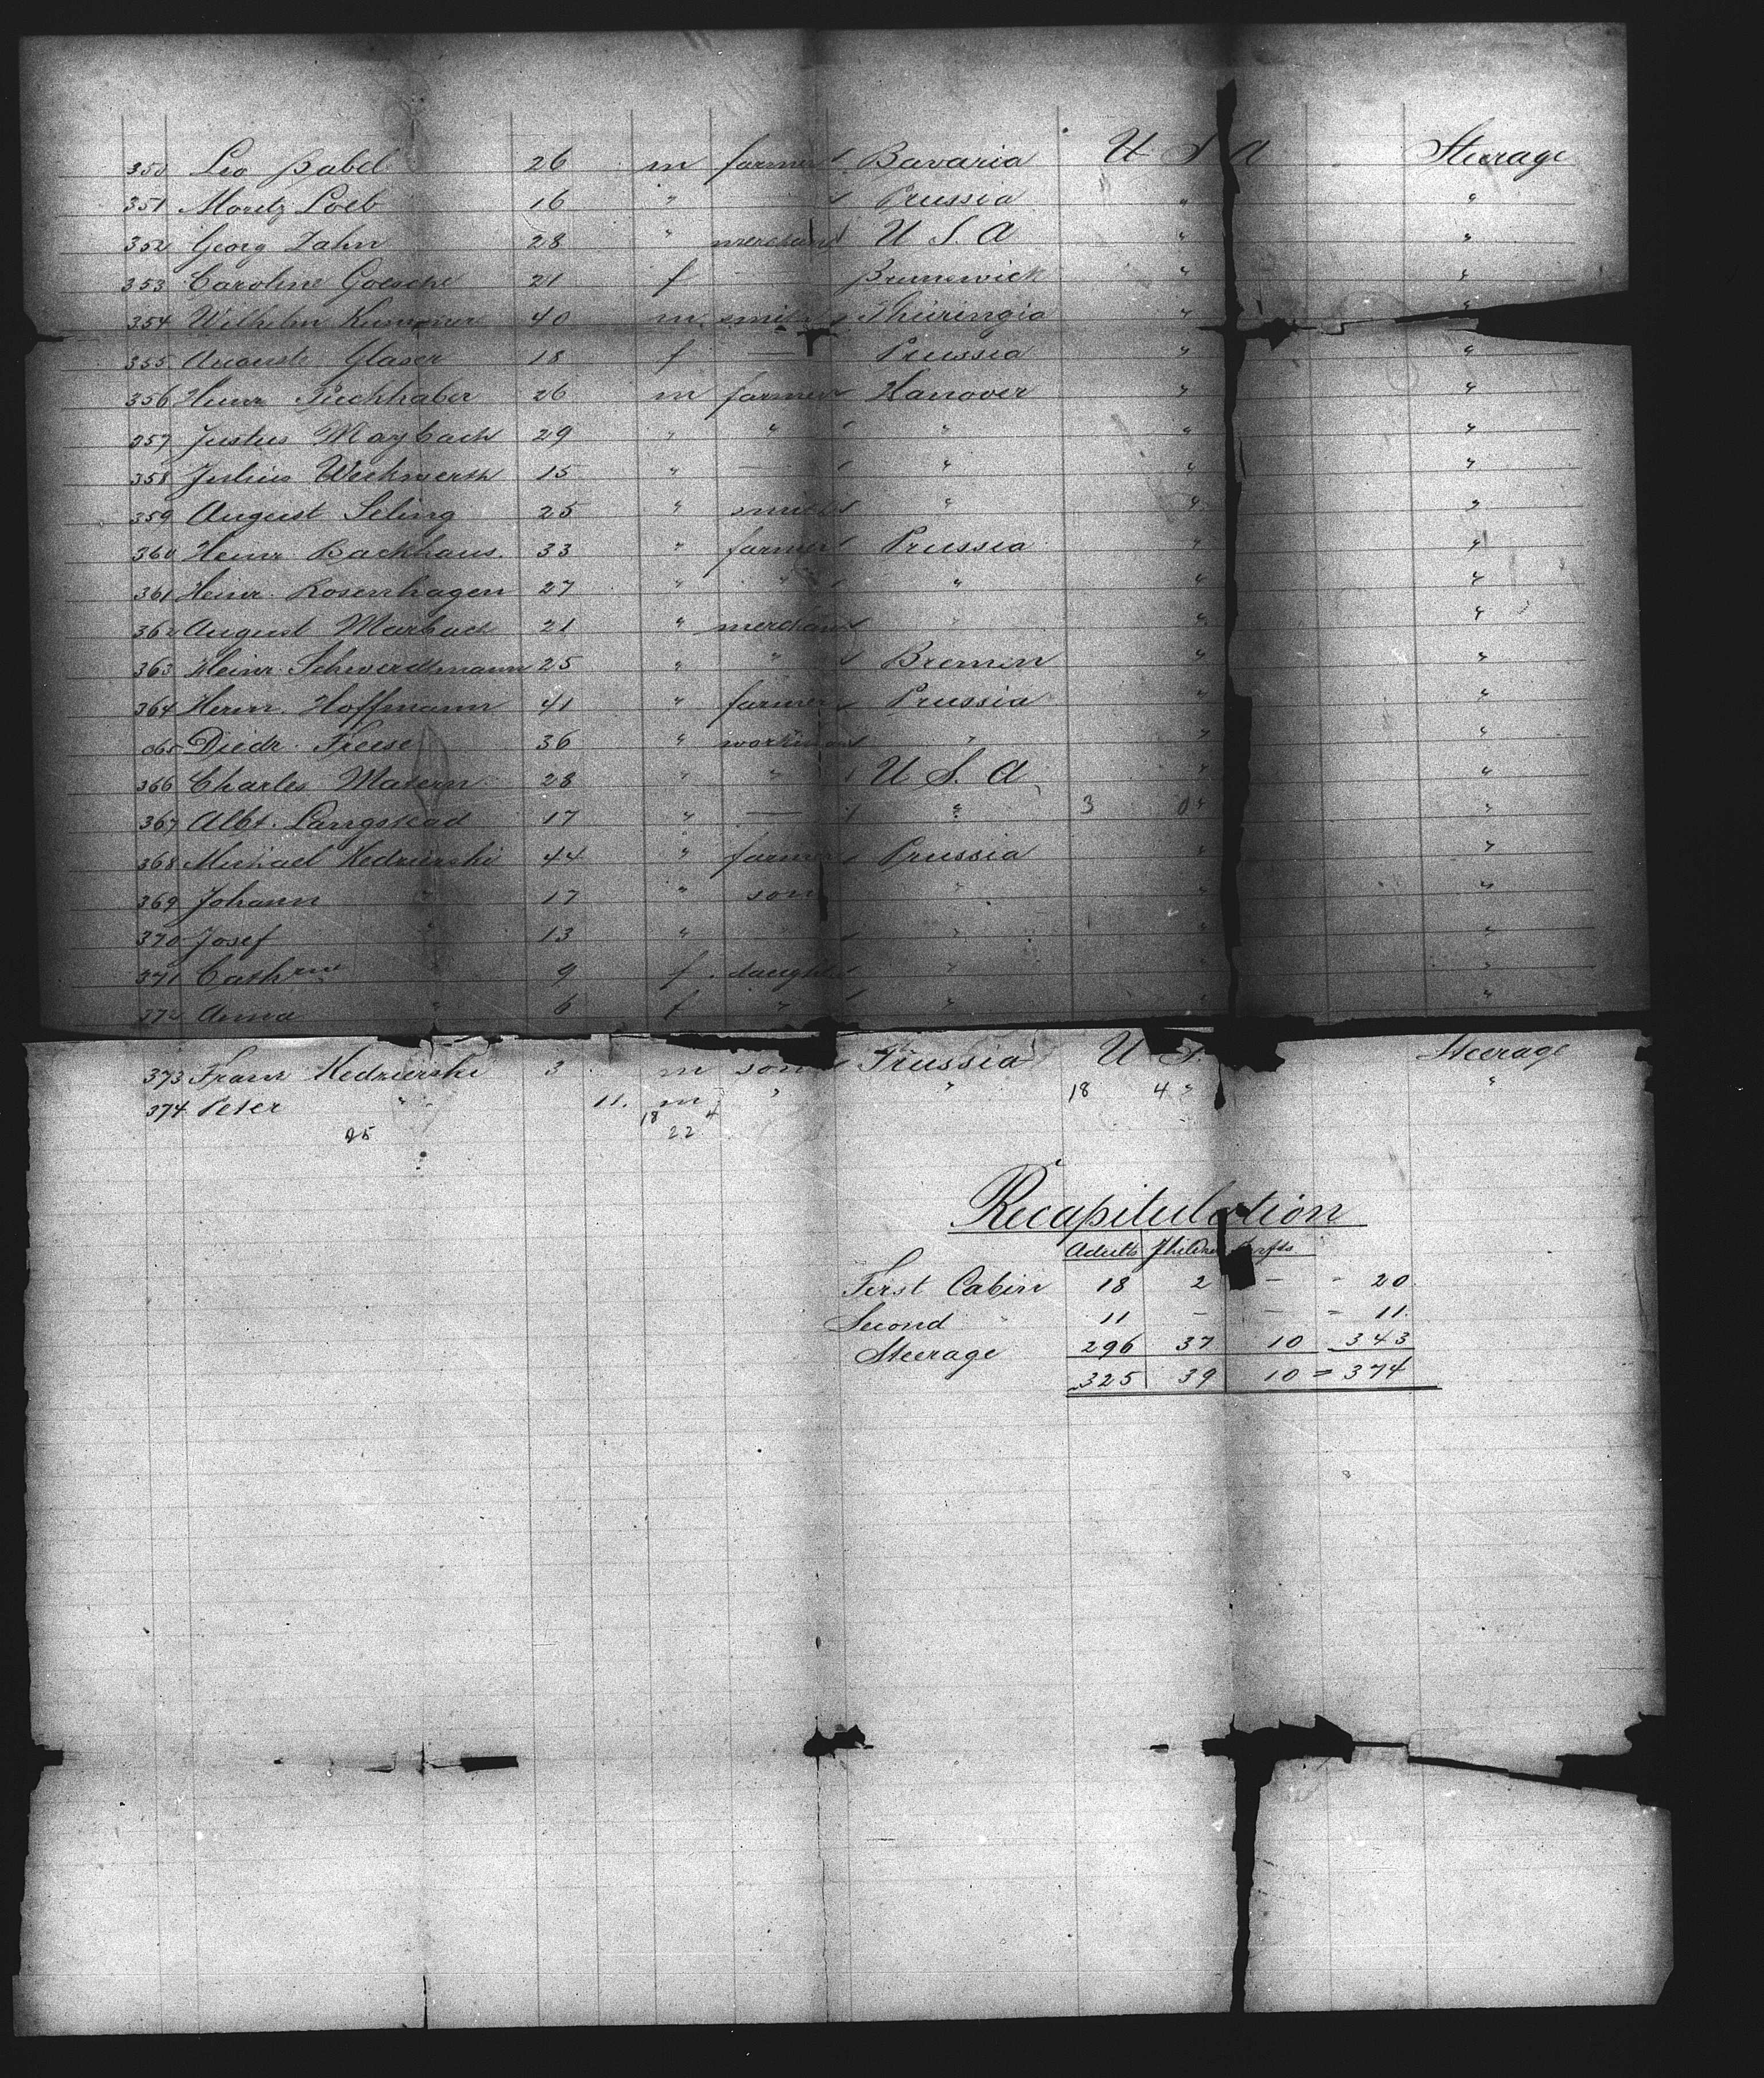 350 Leo Babel 26 m farmer Bavaria U S A Steerage
351 Moritz Loeb 16 " Prussia " "
352 Georg Zahn 28 " merchant U S. A " "
353 Caroline Goesche 21 f — Brunswick " "
354 Wilhelm 40 m smith Thüringia " "
355 Auguste Glaser 18 f — Prussia " "
356 Heinr 26 m farmer Hanover " "
357 Justus Maybach 29 " " " " "
358 Julius 15 " — " " "
359 August Seling 25 " smith " " "
360 Heinr Backhaus. 33 " farmer Prussia " "
361 Heinr. Rosenhagen 27 " " " " "
362 August Marbach 21 " merchant " " "
363 Heinr. Schwerdtmann 25 " " Bremen " "
364 Herm. Hoffmann 41 " farmer Prussia " "
365 Diedr. Freese 36 " workman " " "
366 Charles Matern 28 " " U S. A " "
367 Albt. Langstead 17 " — " 3 0 " "
368 Michael Kedzierski 44 " farmer Prussia " "
369 Johann " 17 " son " " "
370 Josef " 13 " " " "
371 Cathrine " 9 f. daught " " "
372 Anna " 6 f " " " "
373 Franz Kedzierski 3 m son Prussia U S. Steerage
374 Peter " 11. m " " 18 4 " "
18 4
25 22
Recapitulation
Adults
First Cabin 18 2 — = 20
Second " 11 — — = 11.
Steerage 296 37 10 343
325 39 10 = 374